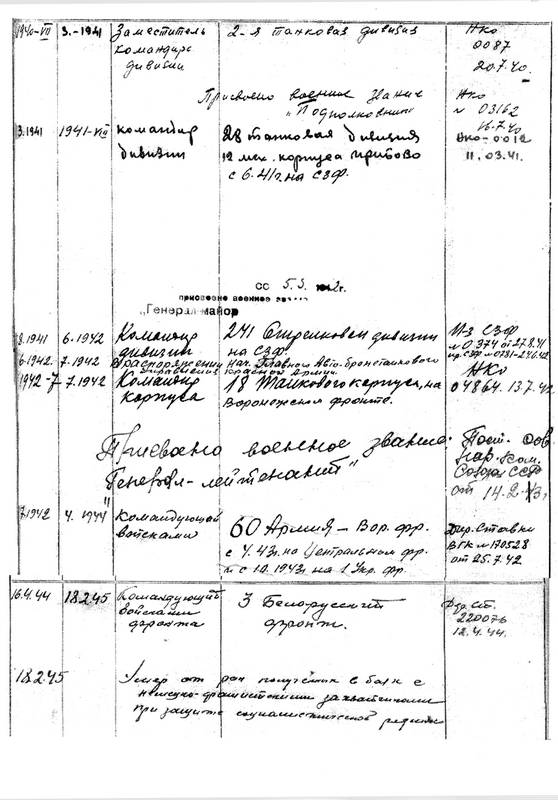 1940-VII 3.-1941 Заместитель 2-я танковая дивизия НКО
командира 0087
дивизии 20.7.40.
Присвоено военное звание НКО
"Подполковник" № 03162
16.7.40
3.1941 1941-VIII командир 28 танковая дивизия НКО-0012
дивизии 12 мех. корпуса Прибово 11.03.41.
с 6.41г. на СЗФ.
сс 5.5. 1942г.
присвоено военное звание
„Генерал-майор"
8.1941 6.1942 Командир 241 Стрелковой дивизии П-з СЗФ
дивизии на СЗФ. № 0374 от 27.8.41
6.1942. 7.1942 В распоряжении нач. Главного Авто-бронетанкового
управления Красной Армии НКО
1942-7 7.1942 Командир 18 Танкового корпуса, на 04864. 13.7.42
корпуса Воронежском фронте.
Присвоено военное звание Пост. Сов.
Генерал-лейтенант" Нар. Ком.
Союза ССР
от 14.2.43г.
7.1942 4.1944 Командующий 60 Армия – Вор. фр. Дир. Ставки
войсками с 4.43г. на Центральном фр. ВГК № 170528
и с 10.1943г. на 1 Укр. фр. от 25.7.42
16.4.44 18.2.45 Командующий 3 Белорусский Дир. Ст.
войсками фронт. 220076
фронта 12.4.44.
18.2.45 Умер от ран получених в боях с
немецко-фашистскими захватчиками
при защите социалистической родины